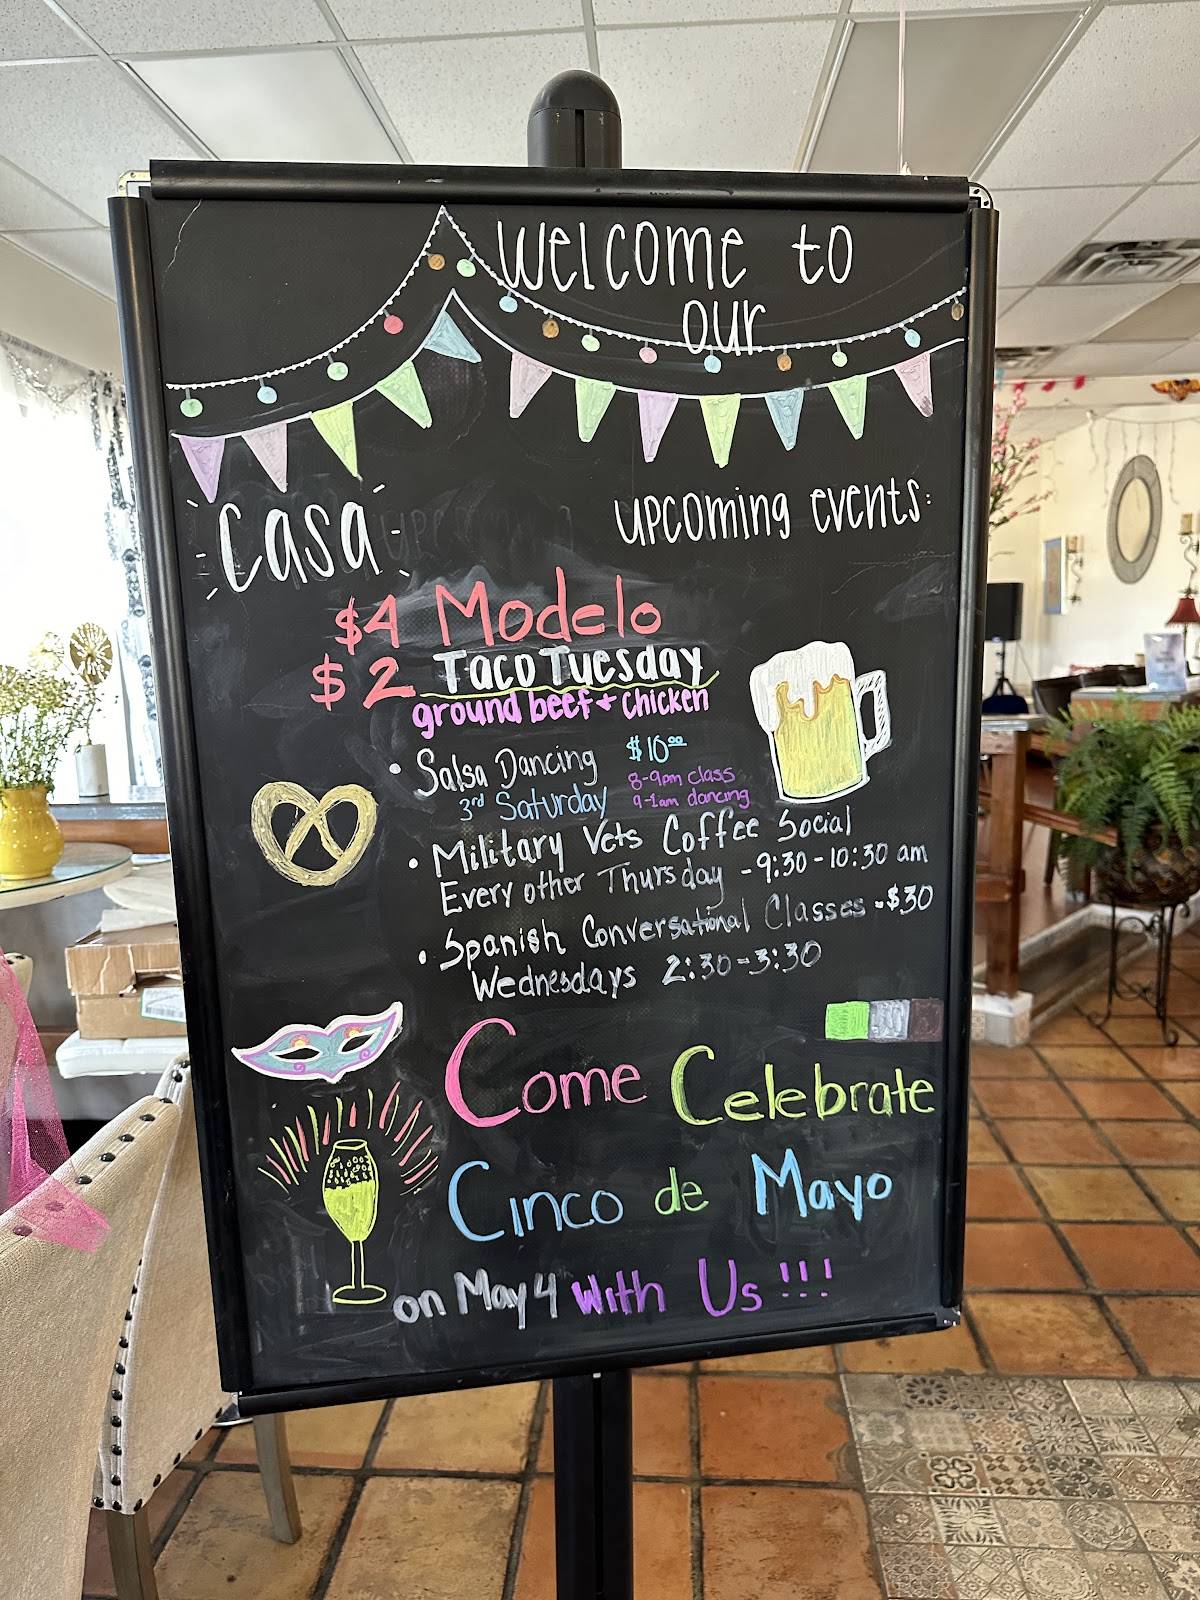 Welcome to
our
casa
upcoming events:
$4 Modelo
$2 Taco Tuesday
ground beef + chicken
• Salsa Dancing $10.00
3rd Saturday 8-9pm class
9-1am dancing
• Military Vets Coffee Social
Every other Thursday - 9:30-10:30 am
• Spanish Conversational Classes - $30
Wednesdays 2:30-3:30
Come Celebrate
Cinco de Mayo
on May 4th With Us!!!